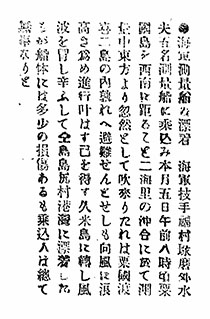 ●海軍測量船の漂着　海軍技手磯村啓磨外水
夫五名測量船に乘込み本月五日午前八時頃粟
國島を西南に距ること二海里の沖合に於て測
量中東方より忽然として吹來りたれは粟國渡
喜二島の內孰れへ避難せんとせしも向風に浪
高き爲め進行叶はす已を得す久米島に轉し風
波を冒し辛ふして仝島島尻村港灣に漂着した
るか船体には多少の損傷あるも乘込人は總て
無事なりと